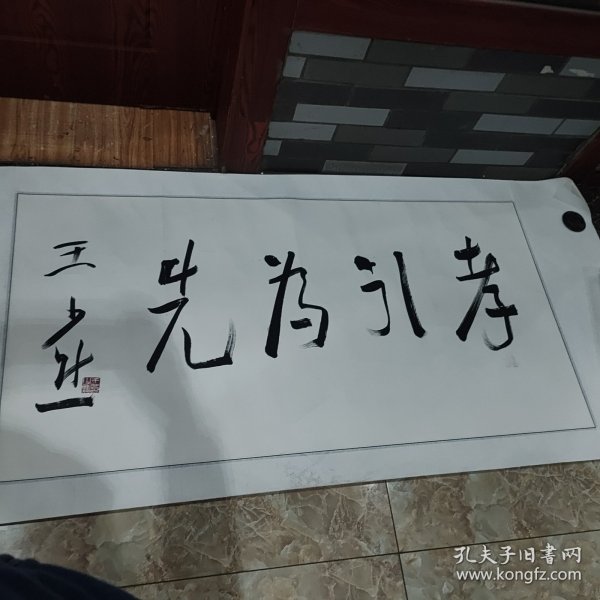 孝行为先
王
孔夫子旧书网
www.kongfz.com